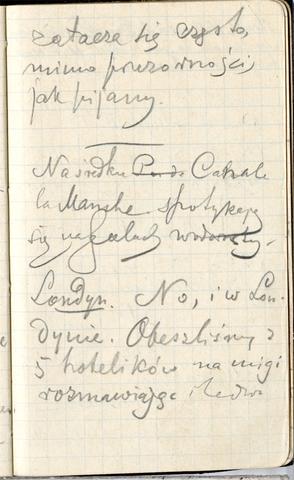 zatacza się często,
mimo przezorności,
jak pijany.
Na środku Canale
la Manche spotykają
się na falach
Londyn. No, i w Lon-
dynie. Obeszliśmy z
5 hotelików na migi
rozmawiając i ledwo